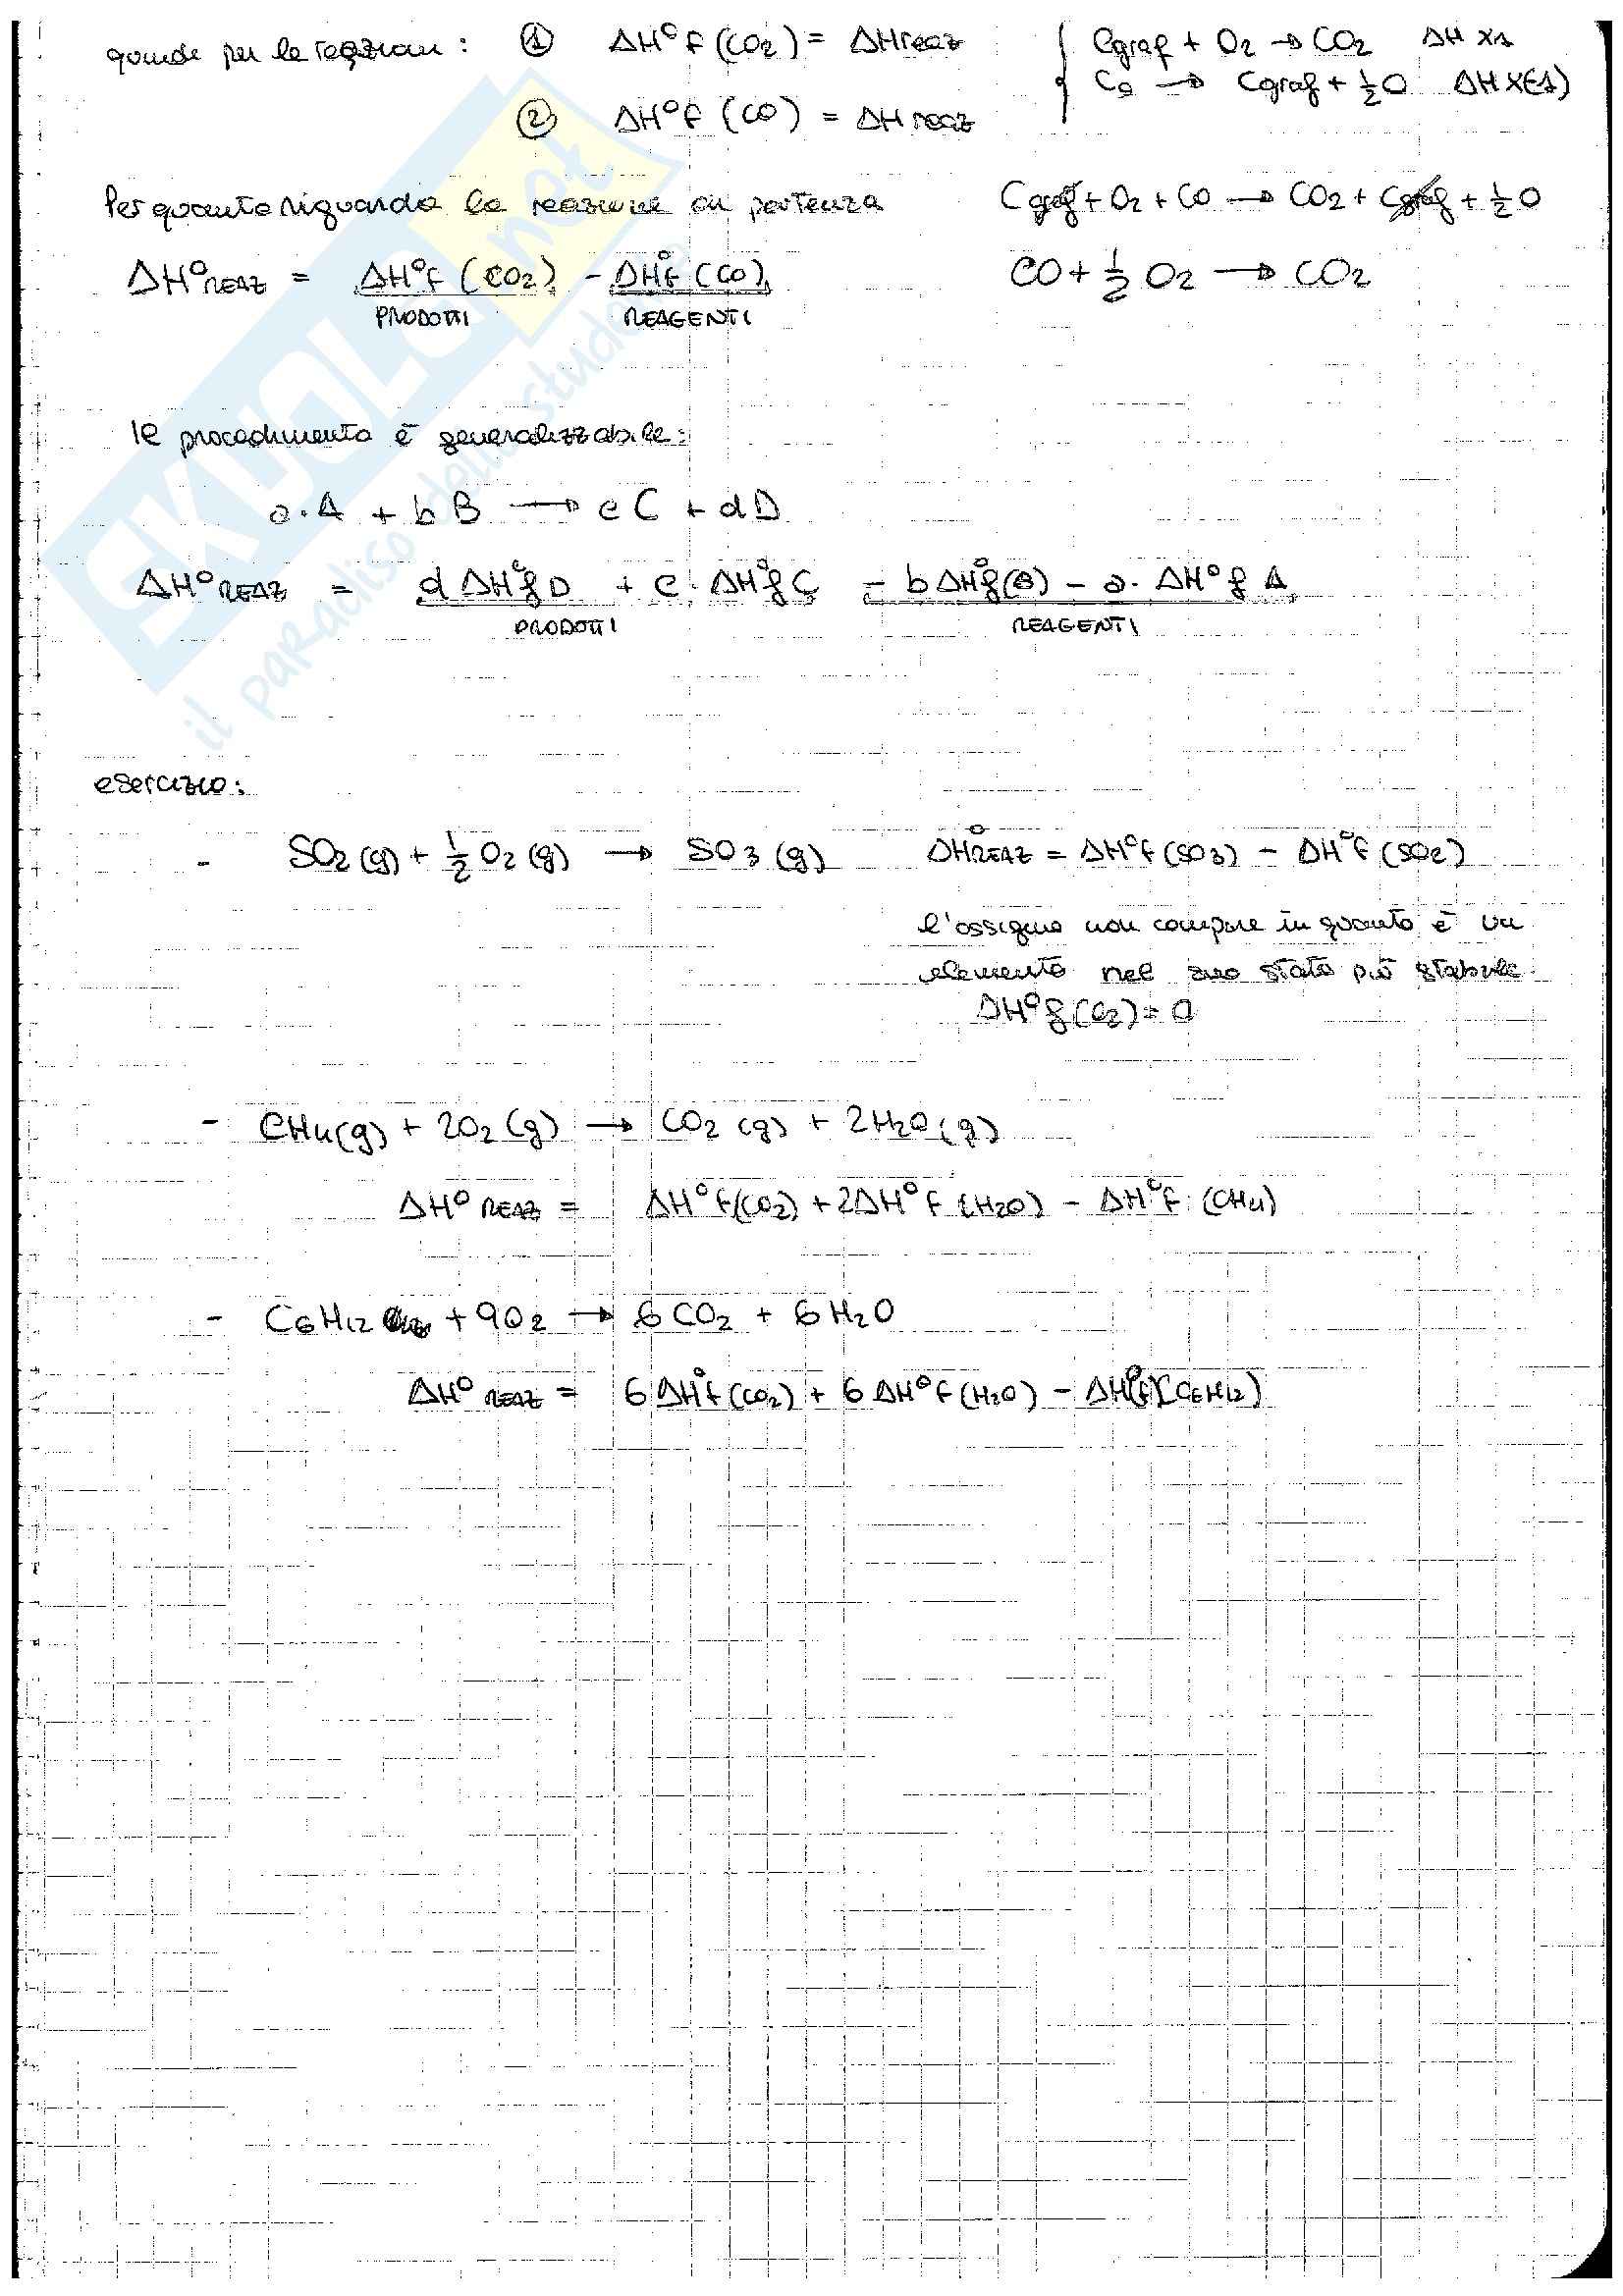 quindi per le reazioni: ① ΔH°f (CO2) = ΔHreaz { Cgraf + O2 → CO2 ΔH x1
② ΔH°f (CO) = ΔHreaz Co → Cgraf + 1/2 O ΔH x(-1)
Per quanto riguarda la reazione di partenza Cgraf + O2 + CO → CO2 + Cgraf + 1/2 O
ΔH°REAZ = ΔH°f (CO2) - ΔH°f (CO) CO + 1/2 O2 → CO2
PRODOTTI REAGENTI
il procedimento è generalizzabile:
a·A + bB → cC + dD
ΔH°REAZ = dΔH°f D + c·ΔH°f C - bΔH°f(B) - a·ΔH°f A
PRODOTTI REAGENTI
esercizio:
- SO2 (g) + 1/2 O2 (g) → SO3 (g) ΔH°REAZ = ΔH°f (SO3) - ΔH°f (SO2)
l'ossigeno non compare in quanto è un
elemento nel suo stato più stabile
ΔH°f (O2) = 0
- CH4(g) + 2O2 (g) → CO2 (g) + 2H2O (g)
ΔH°REAZ = ΔH°f(CO2) + 2ΔH°f (H2O) - ΔH°f (CH4)
- C6H12 + 9O2 → 6CO2 + 6H2O
ΔH°REAZ = 6ΔH°f (CO2) + 6ΔH°f (H2O) - ΔH°f (C6H12)
SKUOLA.net
il paradiso dello studente